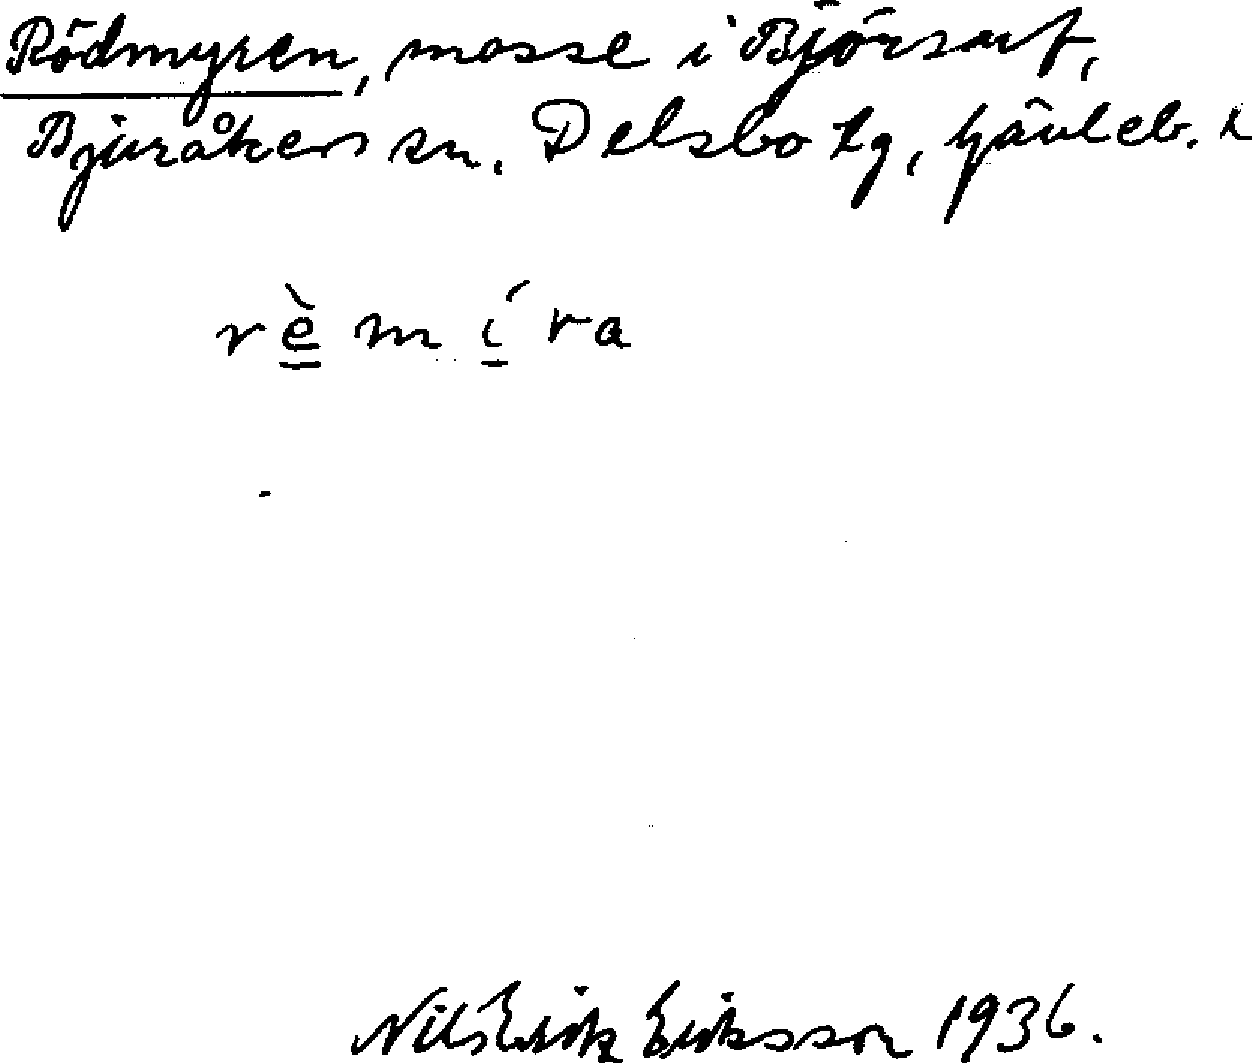 Rödmyren, mosse i Björsarf,
Bjuråkers sn. Delsbo tg, Gävleb. l
rè mí ra
Nils Erik Eriksson 1936.